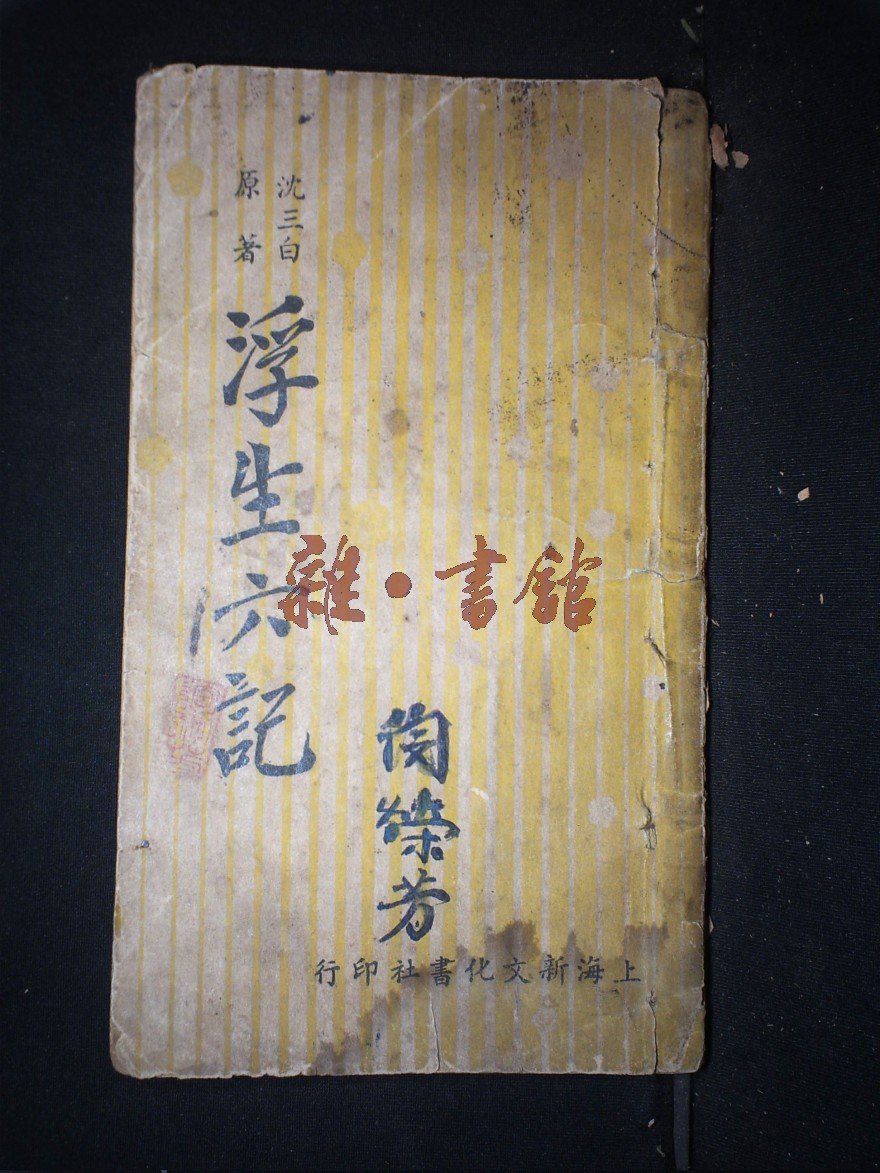 沈三白
原著
浮生六記
雜·書館
榮芳
上海新文化書社印行